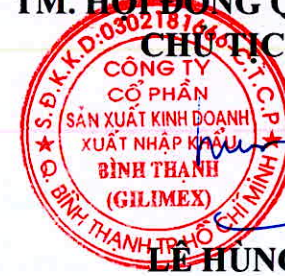 TM. HỘI ĐỒNG Q
CHỦ TỊC
S.Đ.K.K.D:0302181666-C.T.C.P
CÔNG TY
CỔ PHẦN
SẢN XUẤT KINH DOANH
XUẤT NHẬP KHẨU
BÌNH THẠNH
(GILIMEX)
Q. BÌNH THẠNH TP. HỒ CHÍ MINH
LÊ HÙNG